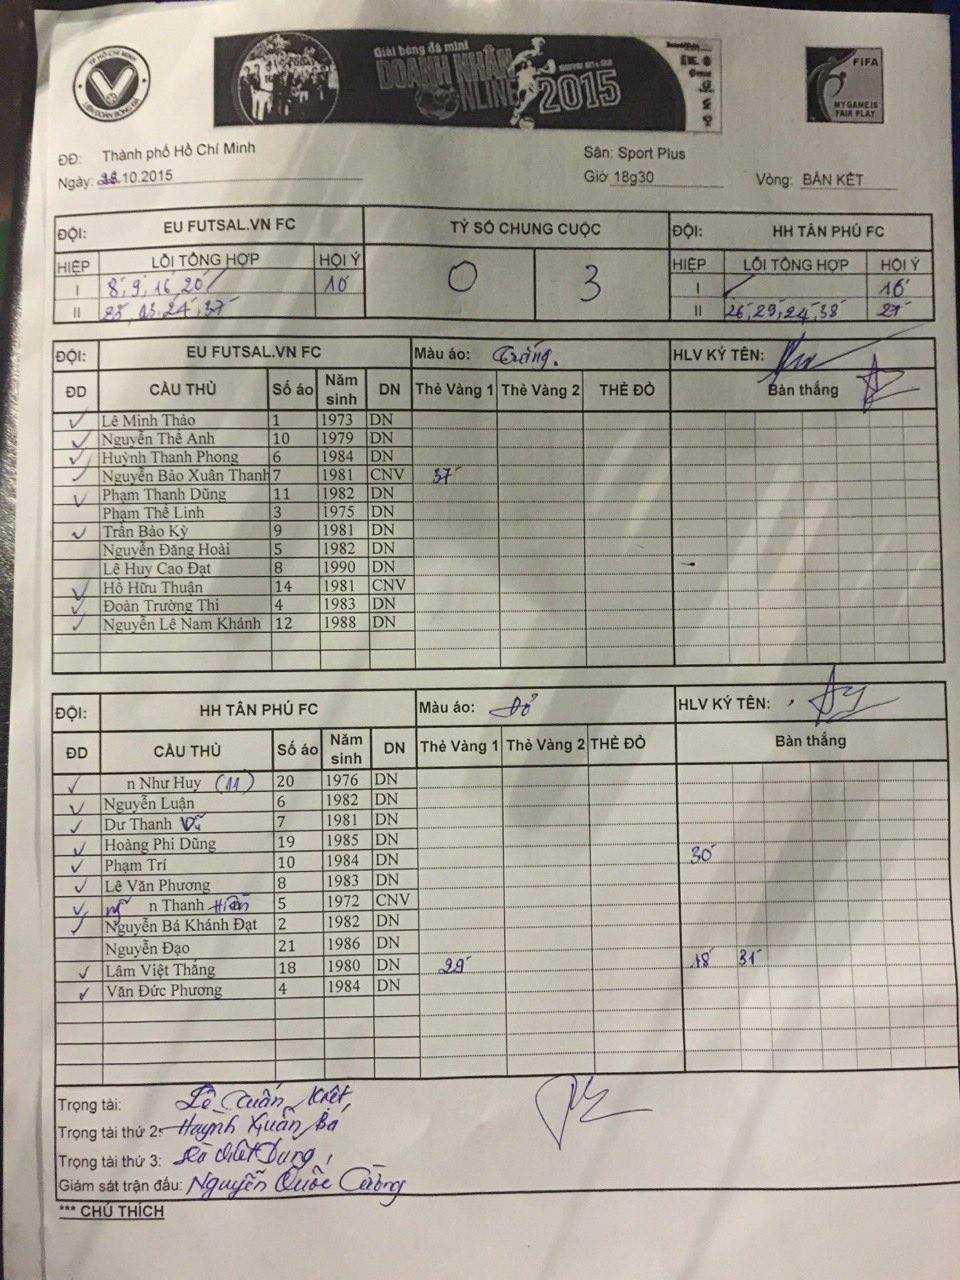 TP HỒ CHÍ MINH
LIÊN ĐOÀN BÓNG ĐÁ
Giải bóng đá mini
DOANH NHÂN
ONLINE 2015
FIFA
MY GAME IS
FAIR PLAY
ĐĐ: Thành phố Hồ Chí Minh
Sân: Sport Plus
Ngày: 28.10.2015
Giờ 18g30
Vòng: BÁN KẾT
ĐỘI: EU FUTSAL.VN FC TỶ SỐ CHUNG CUỘC ĐỘI: HH TÂN PHÚ FC
HIỆP LỖI TỔNG HỢP HỘI Ý 0 3 HIỆP LỖI TỔNG HỢP HỘI Ý
I 8, 9, 16, 20 10 I 16
II 24, 37 II 26, 29, 24, 38 29
ĐỘI: EU FUTSAL.VN FC Màu áo: Trắng. HLV KÝ TÊN:
ĐD CẦU THỦ Số áo Năm sinh DN Thẻ Vàng 1 Thẻ Vàng 2 THẺ ĐỎ Bàn thắng
Lê Minh Thảo 1 1973 DN
Nguyễn Thế Anh 10 1979 DN
Huỳnh Thanh Phong 6 1984 DN
Nguyễn Bảo Xuân Thanh 7 1981 CNV 37
Phạm Thanh Dũng 11 1982 DN
Phạm Thế Linh 3 1975 DN
Trần Bảo Kỳ 9 1981 DN
Nguyễn Đăng Hoài 5 1982 DN
Lê Huy Cao Đạt 8 1990 DN
Hồ Hữu Thuận 14 1981 CNV
Đoàn Trường Thi 4 1983 DN
Nguyễn Lê Nam Khánh 12 1988 DN
ĐỘI: HH TÂN PHÚ FC Màu áo: Đỏ HLV KÝ TÊN:
ĐD CẦU THỦ Số áo Năm sinh DN Thẻ Vàng 1 Thẻ Vàng 2 THẺ ĐỎ Bàn thắng
n Như Huy (11) 20 1976 DN
Nguyễn Luận 6 1982 DN
Dư Thanh Vũ 7 1981 DN
Hoàng Phi Dũng 19 1985 DN
Phạm Trí 10 1984 DN 30
Lê Văn Phương 8 1983 DN
n Thanh Hiền 5 1972 CNV
Nguyễn Bá Khánh Đạt 2 1982 DN
Nguyễn Đạo 21 1986 DN
Lâm Việt Thắng 18 1980 DN 29 18 31
Văn Đức Phương 4 1984 DN
Trọng tài: Lê Xuân
Trọng tài thứ 2: Huỳnh Xuân Bá
Trọng tài thứ 3: Dung
Giám sát trận đấu: Nguyễn Quốc Cường
*** CHÚ THÍCH